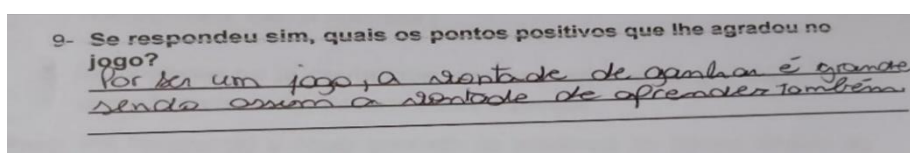 9- Se respondeu sim, quais os pontos positivos que lhe agradou no
jogo?
Por ser um jogo, a vontade de ganhar é grande
sendo assim a vontade de aprender também.